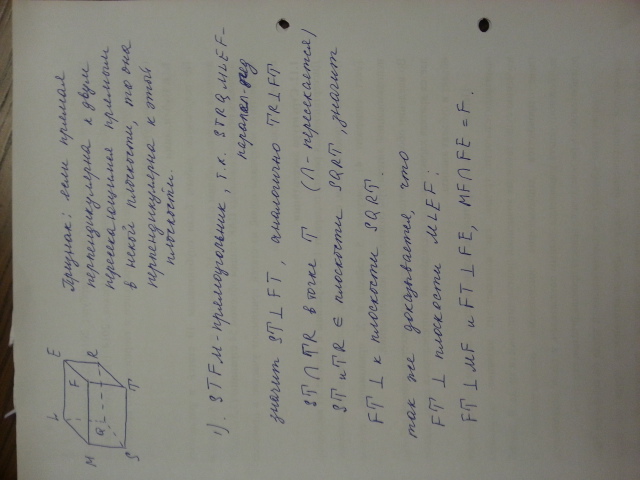 L E
M F
Q R
S T
Признак: если прямая
перпендикулярна к двум
пересекающимся прямым
в некой плоскости, то она
перпендикулярна к этой
плоскости.
1). STFM - прямоугольник, т.к. STRQMLEF -
паралел-пед
значит ST ⊥ FT, аналогично TR ⊥ FT
ST ∩ TR в точке T (∩ - пересекается)
ST и TR ∈ плоскости SQRT, значит
FT ⊥ к плоскости SQRT.
так же доказывается, что
FT ⊥ плоскости MLEF:
FT ⊥ MF и FT ⊥ FE, MF ∩ FE = F.